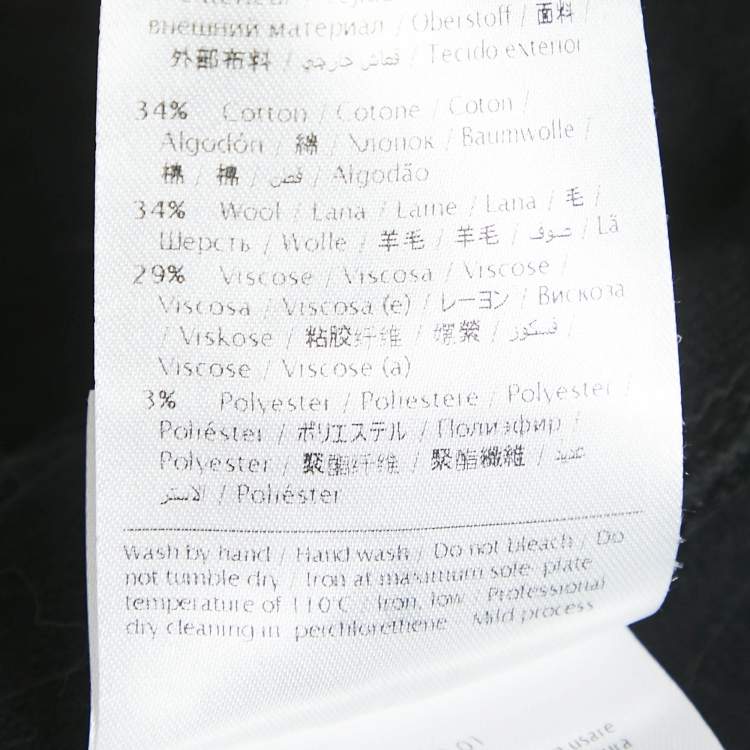 внешний материал / Oberstoff / 面料 /
外部布料 / قماش خارجي / Tecido exterior
34% Cotton / Cotone / Coton /
Algodón / 綿 / Хлопок / Baumwolle /
棉 / 棉 / قطن / Algodão
34% Wool / Lana / Laine / Lana / 毛 /
Шерсть / Wolle / 羊毛 / 羊毛 / صوف / Lã
29% Viscose / Viscosa / Viscose /
Viscosa / Viscosa (e) / レーヨン / Вискоза
/ Viskose / 粘胶纤维 / 嫘縈 / فسكوز /
Viscose / Viscose (a)
3% Polyester / Poliestere / Polyester /
Poliéster / ポリエステル / Полиэфир /
Polyester / 聚酯纤维 / 聚酯纖維 / عديد
الاستر / Poliéster
Wash by hand / Hand wash / Do not bleach / Do
not tumble dry / Iron at maximum sole-plate
temperature of 110°C / Iron, low / Professional
dry cleaning in perchlorethene / Mild process
usare